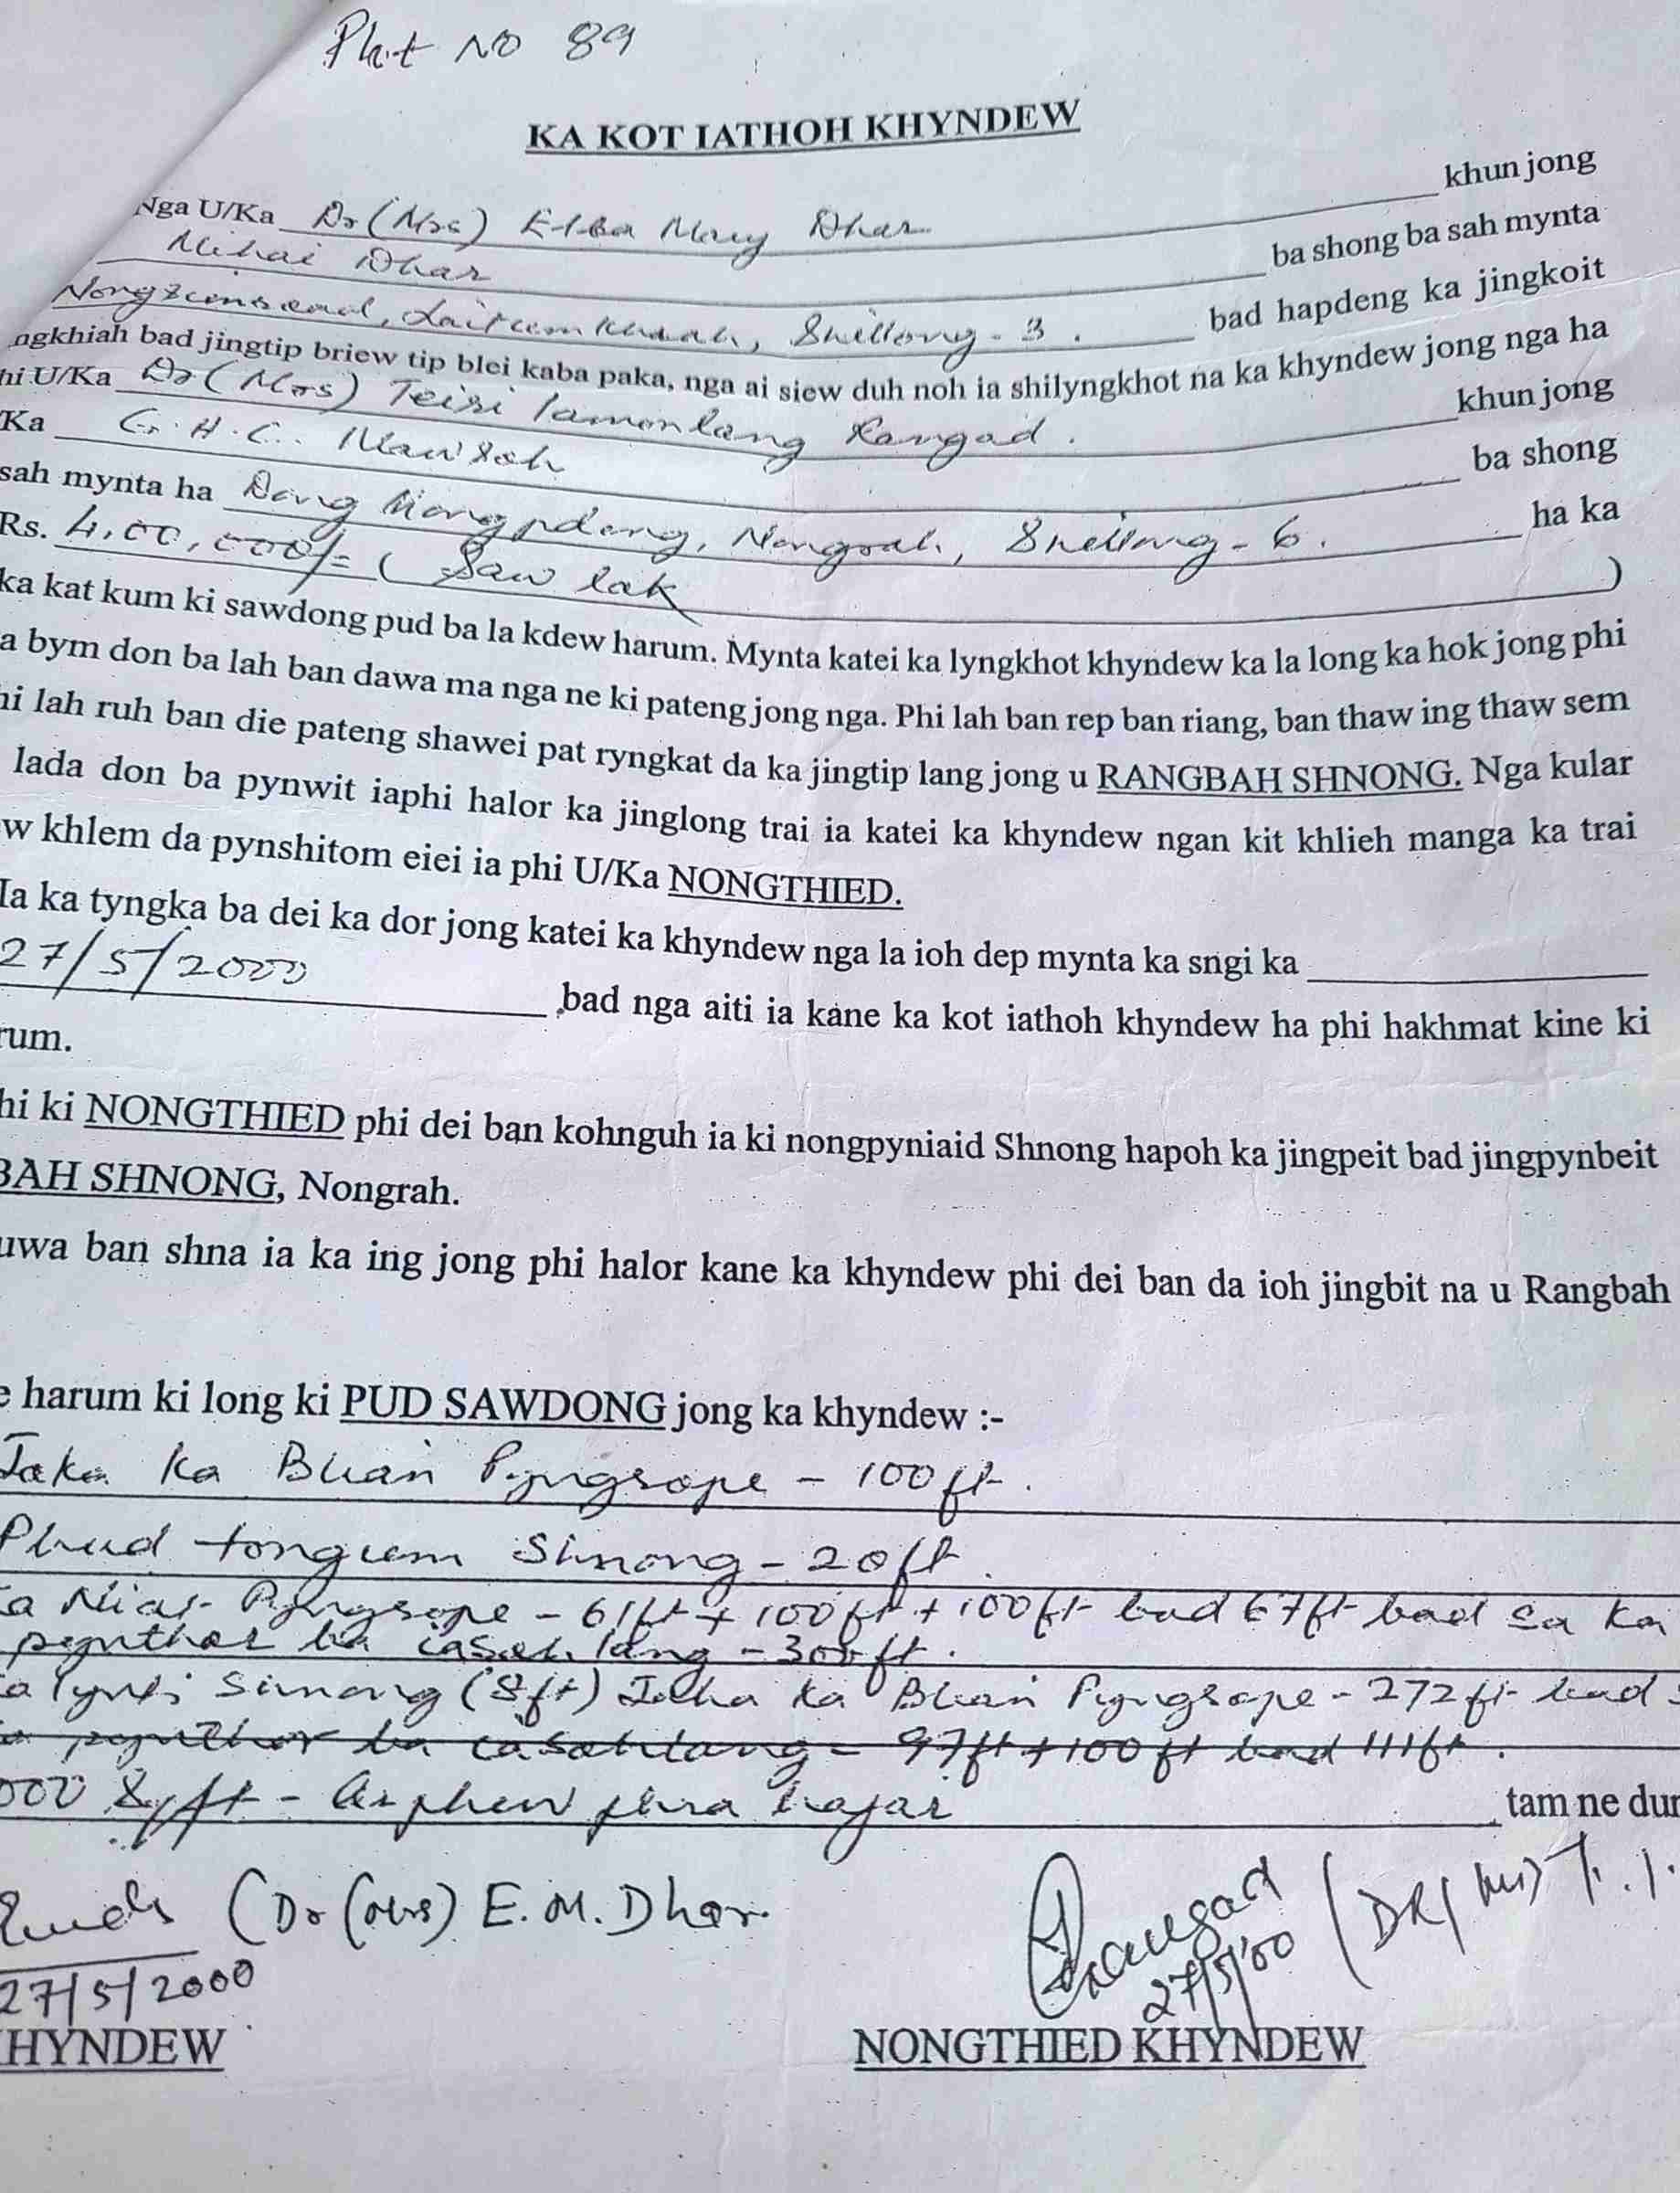 Plot NO 89
KA KOT IATHOH KHYNDEW
Nga U/Ka Dr (Mrs) Elba Mary Dhar khun jong
Mihai Dhar ba shong ba sah mynta
Laitumkhrah, Shillong - 3. bad hapdeng ka jingkoit
ngkhiah bad jingtip briew tip blei kaba paka, nga ai siew duh noh ia shilyngkhot na ka khyndew jong nga ha
hi U/Ka Dr (Mrs) Teisi Iamonlang Rangad. khun jong
Ka G.H.C. Mawroh ba shong
sah mynta ha Nongrah, Shillong - 6. ha ka
Rs. 4,00,000/= ( Saw lak )
ka kat kum ki sawdong pud ba la kdew harum. Mynta katei ka lyngkhot khyndew ka la long ka hok jong phi
a bym don ba lah ban dawa ma nga ne ki pateng jong nga. Phi lah ban rep ban riang, ban thaw ing thaw sem
hi lah ruh ban die pateng shawei pat ryngkat da ka jingtip lang jong u RANGBAH SHNONG. Nga kular
lada don ba pynwit iaphi halor ka jinglong trai ia katei ka khyndew ngan kit khlieh manga ka trai
w khlem da pynshitom eiei ia phi U/Ka NONGTHIED.
Ia ka tyngka ba dei ka dor jong katei ka khyndew nga la ioh dep mynta ka sngi ka
27/5/2000 bad nga aiti ia kane ka kot iathoh khyndew ha phi hakhmat kine ki
rum.
hi ki NONGTHIED phi dei ban kohnguh ia ki nongpyniaid Shnong hapoh ka jingpeit bad jingpynbeit
BAH SHNONG, Nongrah.
uwa ban shna ia ka ing jong phi halor kane ka khyndew phi dei ban da ioh jingbit na u Rangbah
e harum ki long ki PUD SAWDONG jong ka khyndew :-
Jaka ka Bhan Pyngrope - 100 ft.
Phud tongum Shnong - 20 ft.
a Niar Pyngrope - 61ft + 100ft + 100ft bad 67ft bad sa ka
pynthor ba iasoh lang - 300 ft.
a lynti Shnong (8ft) Jaka ka Bhan Pyngrope - 272 ft bad
pynthor ba iasohlang - 97ft + 100 ft bad 111ft.
000 Sq ft - arphew phra hajar tam ne dun
(Dr (Mrs) E.M. Dhar
27/5/2000
Rangad (DR( Mrs) T. I.
27/5/'00
HYNDEW
NONGTHIED KHYNDEW